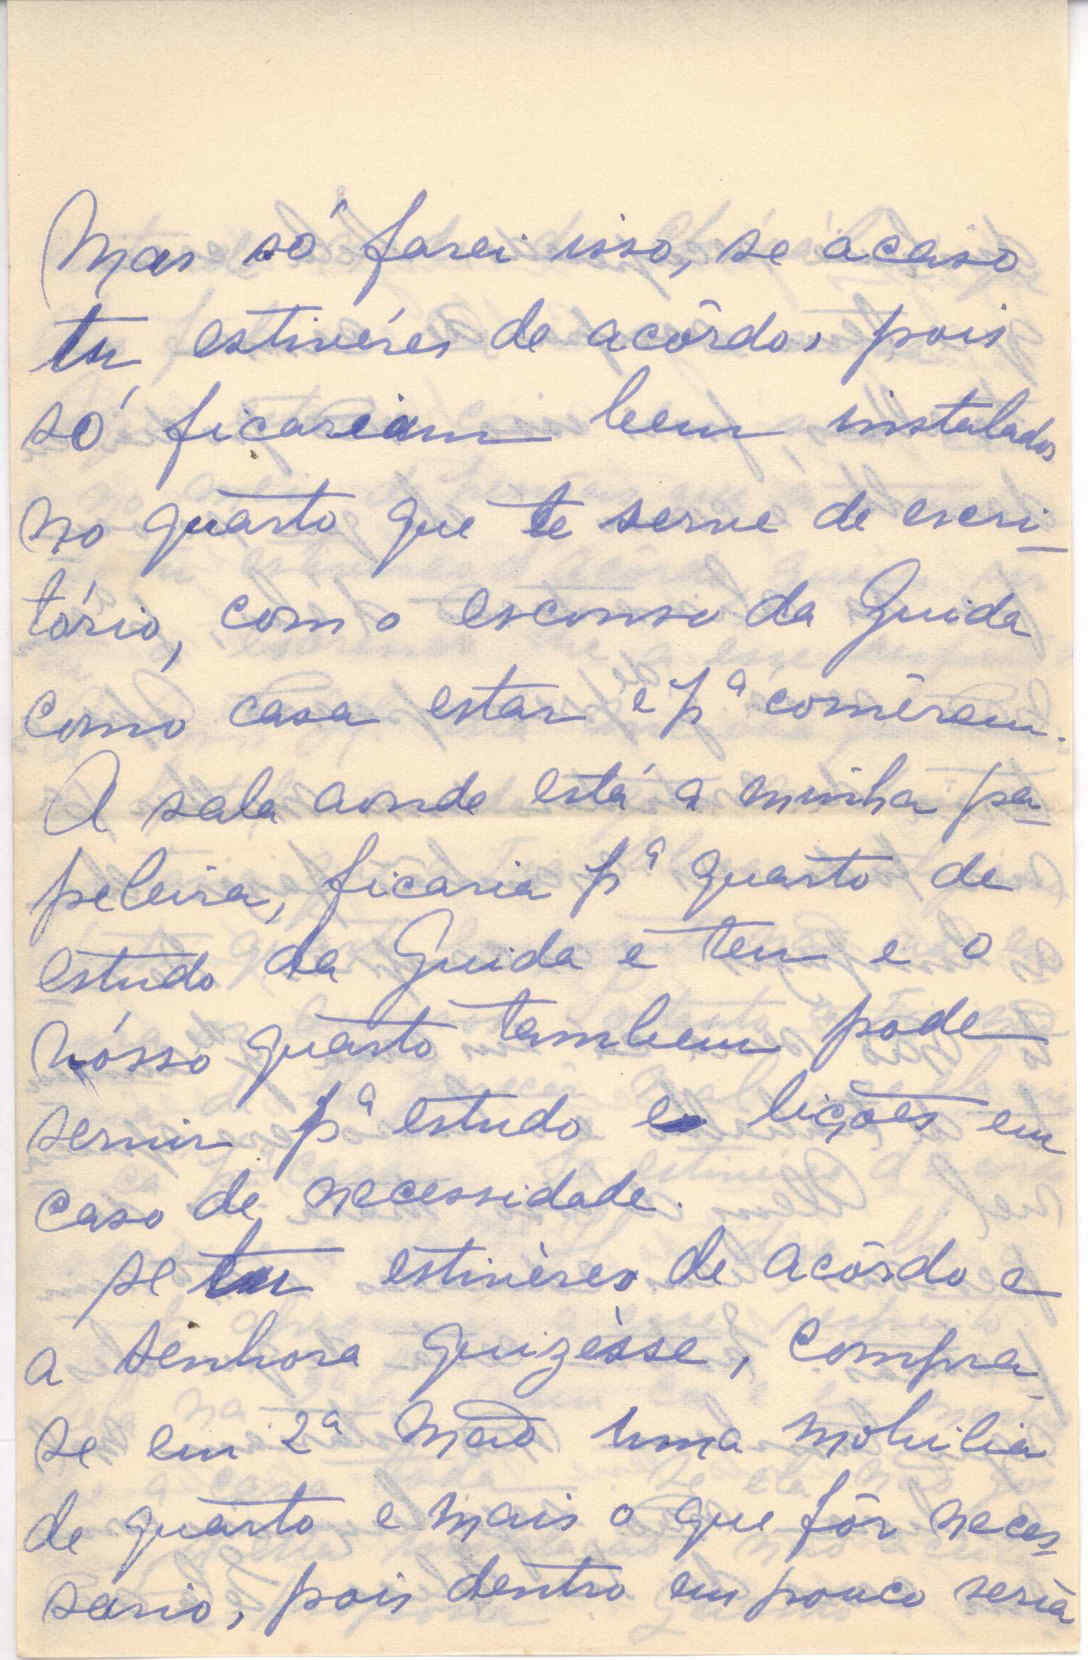 Mas só farei isso, se acaso
tu estivéres de acôrdo, pois
só ficariam bem instalados
no quarto que te serve de escri-
tório, com o esconso da Guida
como casa estar e pª comêrem.
A sala aonde está a minha pa-
peleira, ficaria pª quarto de
estudo da Guida e teu e o
nósso quarto tambem pode
servir pª estudo e lições em
caso de necessidade.
Se tu estivéres de acôrdo e
a senhora quizésse, compra-
se em 2ª mão uma mobilia
de quarto e mais o que fôr neces-
sario, pois dentro em pouco seria